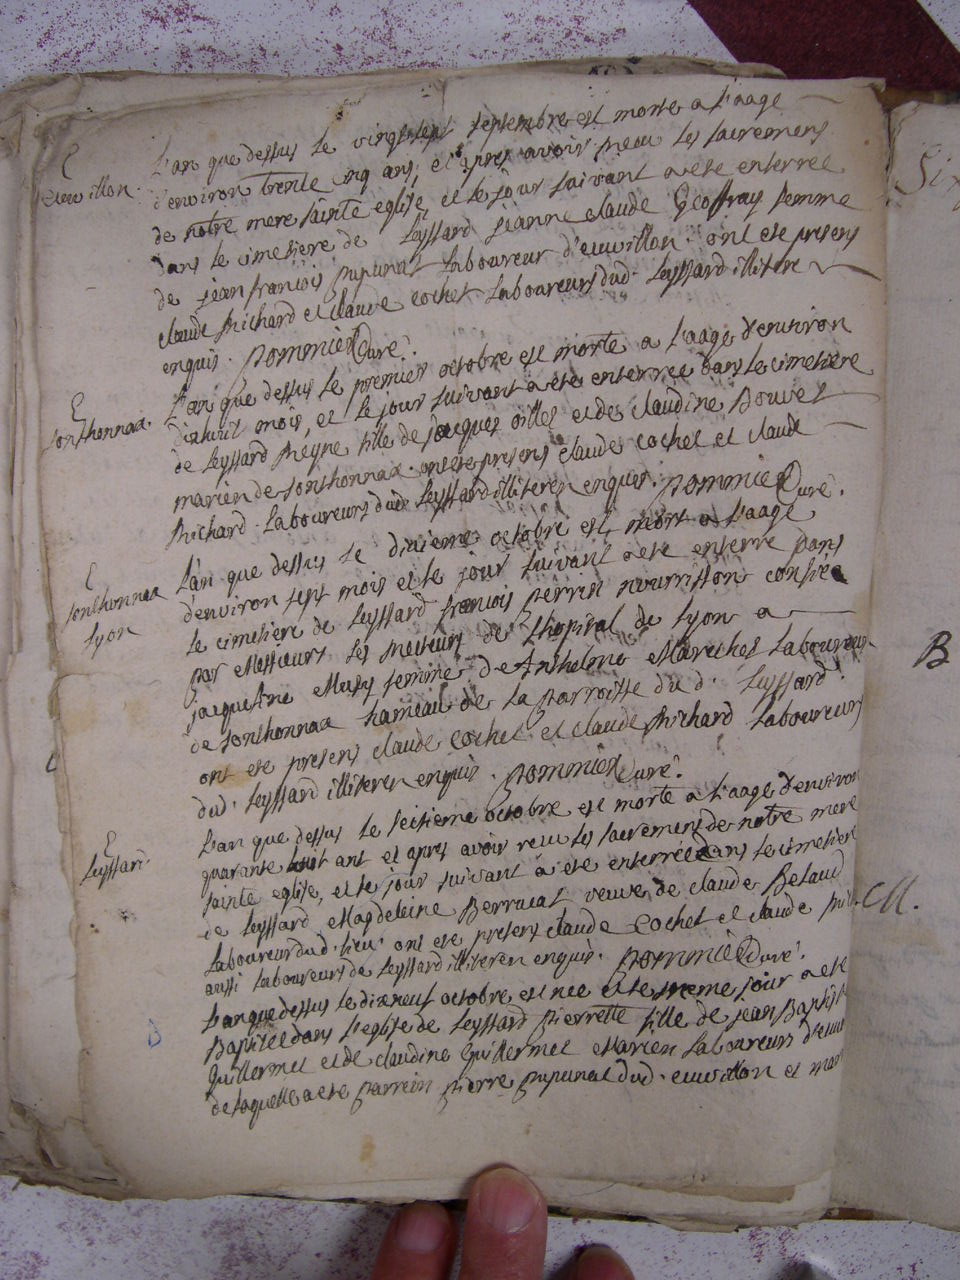 E
euvillon.
L'an que dessus le vingt sept septembre est morte a l'aage
d'environ trente cinq ans, et apres avoir receu les sacremens
de notre mere sainte eglise, et le jour suivant a ete enterree
dans le cimetiere de Leyssard jeanne claude Geoffray femme
de jean francois pupunat laboureur d'euvillon. ont ete presens
claude Michard et claude cochet laboureurs dud. Leyssard illitere
enquis. pommier Curé.
E
sonthonnax.
L'an que dessus le premier octobre est morte a l'aage d'environ
dixhuit mois, et le jour suivant a ete enterree dans le cimetiere
de Leyssard fille de jacques et de claudine Bouvet
marien de sonthonnax. ont ete presens claude cochet et claude
Michard laboureurs dud Leyssard illiteren enquis. pommier Curé.
E
sonthonnax
Lyon
L'an que dessus le dixieme octobre est mort a l'aage
d'environ sept mois et le jour suivant a ete enterre dans
le cimetiere de Leyssard francois perrin nourrisson confiée
par Messieurs les Recteurs de l'hopital de Lyon a
jacqueline femme d'Anthelme Marechet laboureur
de sonthonnax hameau de la parroisse du d. Leyssard.
ont ete presens claude cochet et claude Michard laboureurs
dud. Leyssard illiteren enquis. pommier Curé.
E
Leyssard
L'an que dessus le seisieme octobre est morte a l'aage d'environ
quarante huit ant et apres avoir receu les sacremens de notre mere
sainte eglise, et le jour suivant a ete enterrée dans le cimetiere
de Leyssard Magdeleine Berrucat veuve de claude Belaud
laboureur dud. lieu. ont ete presens claude cochet et claude Mich.
aussi laboureurs de Leyssard illiteren enquis. pommier Curé.
L'an que dessus le dixneuf octobre est nee et le meme jour a ete
Baptisee dans l'eglise de Leyssard pierrette fille de jean Baptist
Guillermet et de claudine Guillermet Marien laboureurs d'euvi
de laquelle a ete parrein pierre pupunat dud. euvillon et mar
Six
B
M.